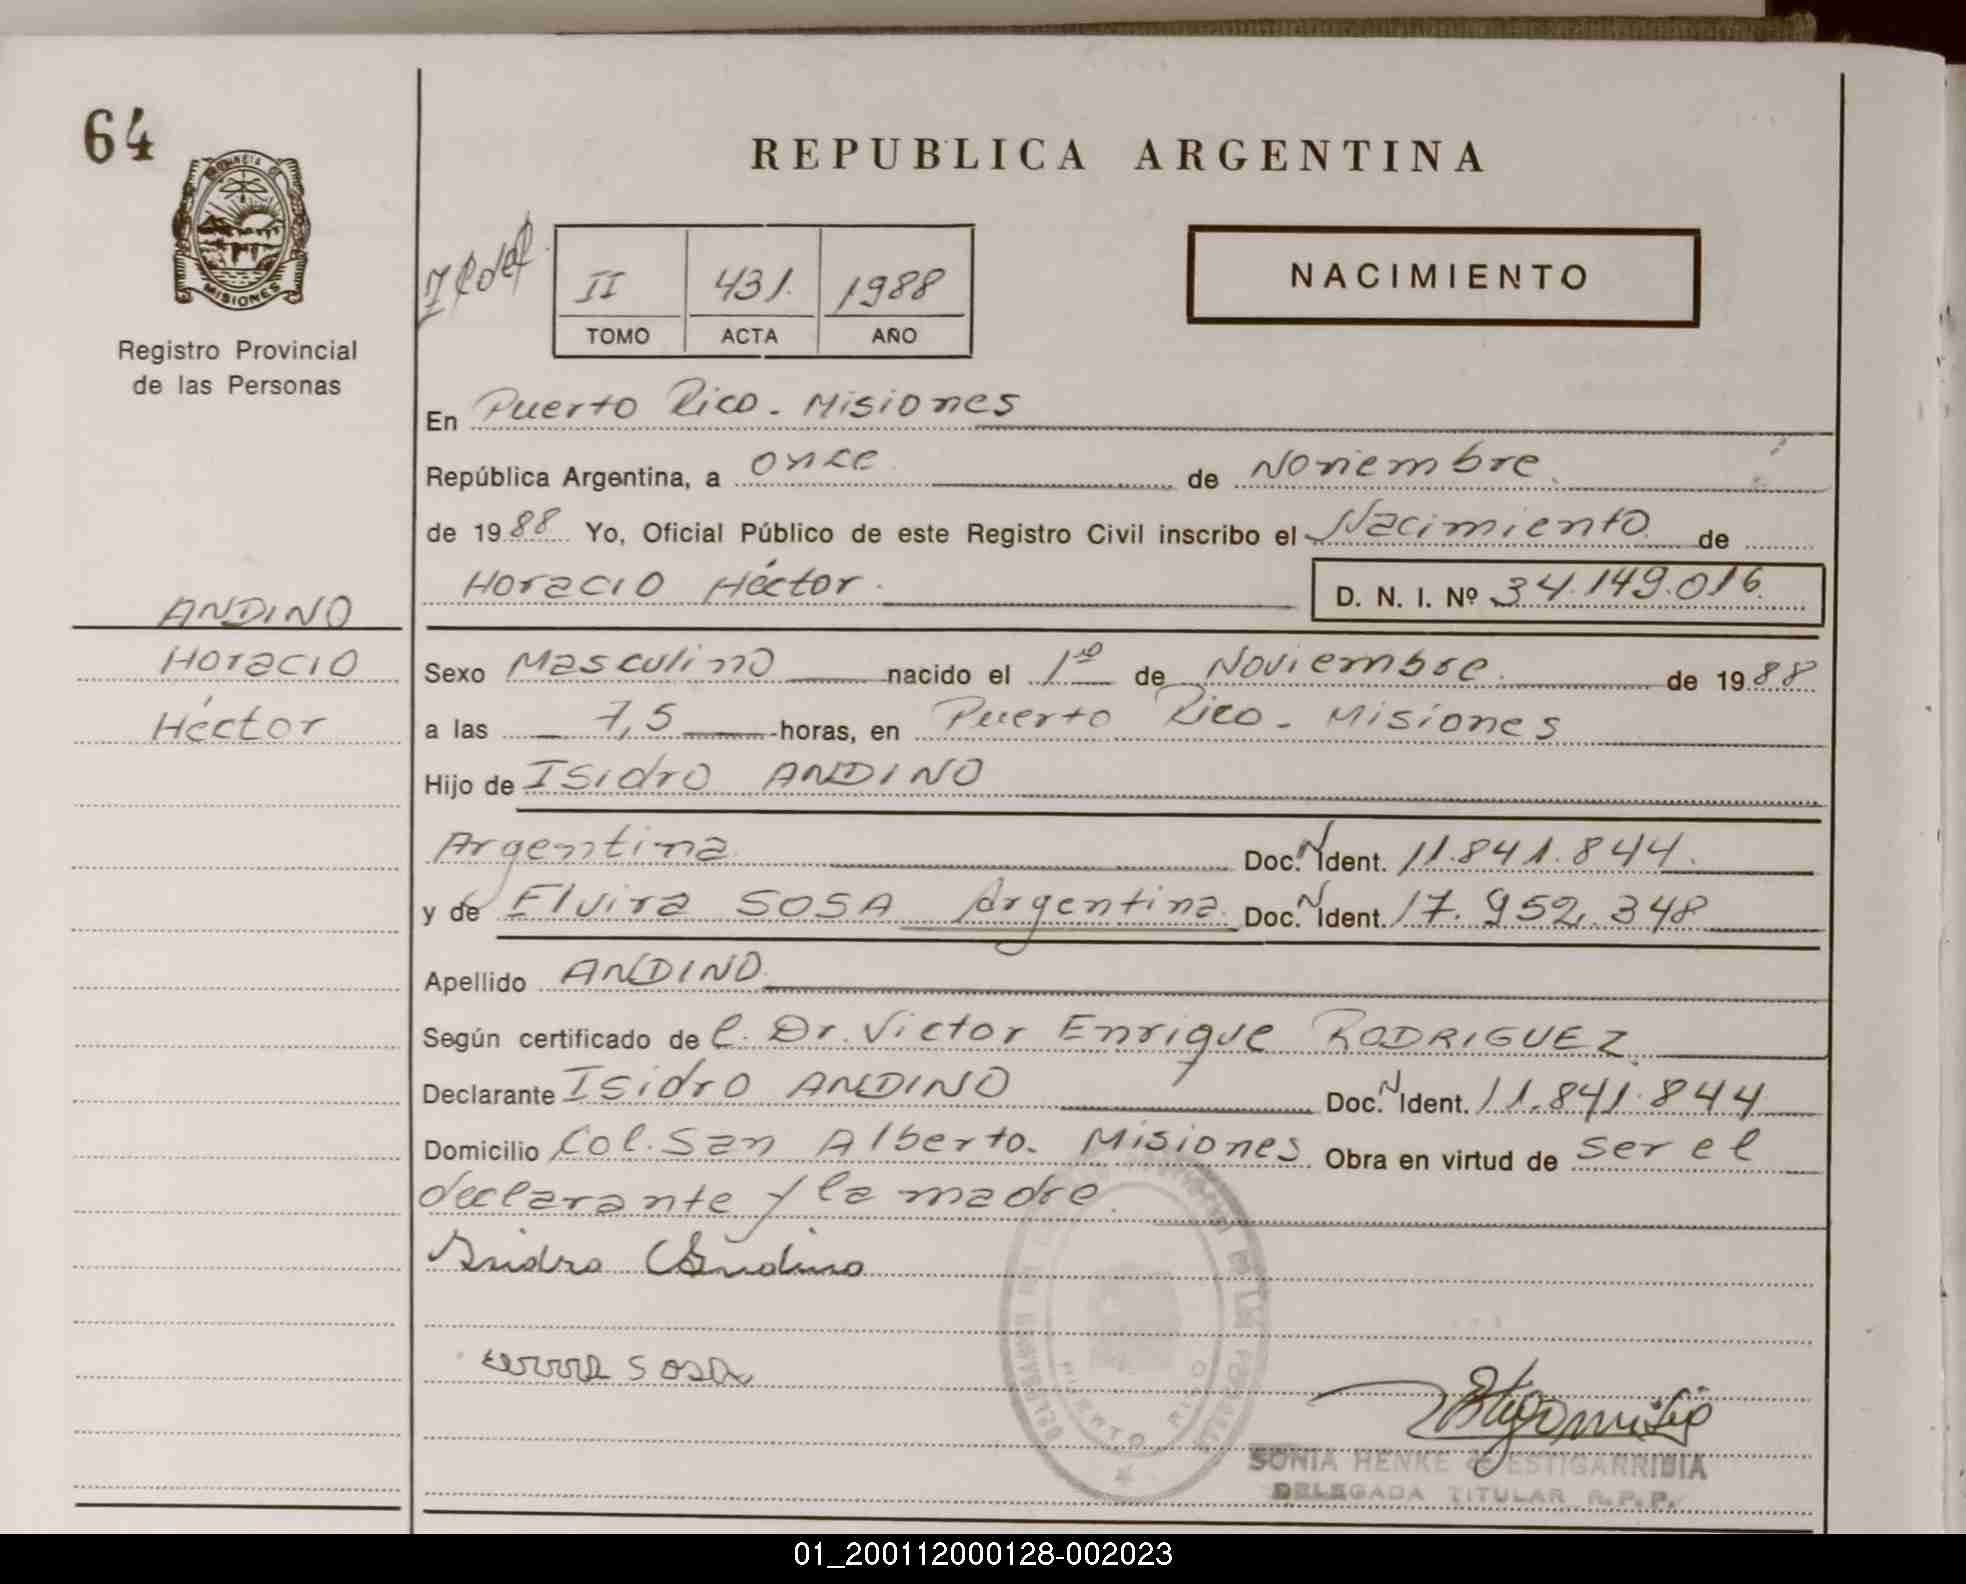 64
PROVINCIA DE
MISIONES
Registro Provincial
de las Personas
ANDINO
Horacio
Héctor
REPUBLICA ARGENTINA
II 431. 1988
TOMO ACTA AÑO
NACIMIENTO
En Puerto Rico - Misiones
República Argentina, a once de Noviembre
de 1988 Yo, Oficial Público de este Registro Civil inscribo el Nacimiento de
Horacio Héctor. D. N. I. Nº 34.149.016
Sexo Masculino nacido el 1º de Noviembre de 1988
a las 7,5 horas, en Puerto Rico - Misiones
Hijo de Isidro ANDINO
Argentina Doc. N Ident. 11.841.844.
y de Elvira SOSA Argentina Doc. N Ident. 17.952.348
Apellido ANDINO
Según certificado de l. Dr. Victor Enrique RODRIGUEZ
Declarante Isidro ANDINO Doc. N Ident. 11.841.844
Domicilio Col. San Alberto - Misiones Obra en virtud de ser el
declarante y la madre.
Isidro Andino
sosa
PUERTO RICO
SONIA HENKE de ESTIGARRIBIA
DELEGADA TITULAR R.P.P.
01_200112000128-002023